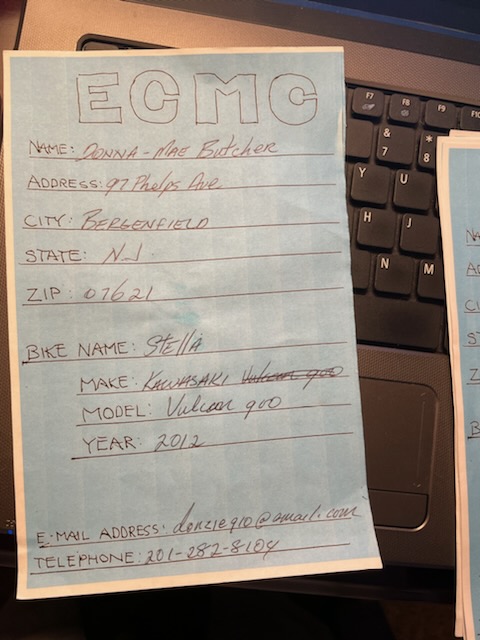 ECMC
NAME: DONNA-MAE Butcher
ADDRESS: 97 Phelps Ave.
CITY: BERGENFIELD
STATE: NJ
ZIP: 07621
BIKE NAME: Stella
MAKE: KAWASAKI Vulcan 900
MODEL: Vulcan 900
YEAR: 2012
E-MAIL ADDRESS:
TELEPHONE: 201-282-8104
F7 F8 F9 F10
& 7 * 8
Y U
H J
N M
NA
AD
CI
ST
Z
B